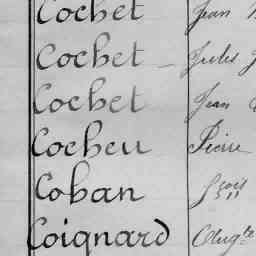 Cochet Jean
Cochet Jules J
Cochet Jean
Cocheu Pierre
Coban
Coignard Augte